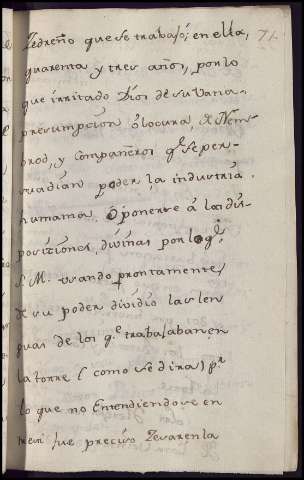 Zedreño que se trabajó, en ella, 71.
quarenta y tres años, por lo
que irritado Dios de su vana
presumpcion o locura, de Nem-
brod, y compañeros q.e se per-
suadian poder, la industria
humama oponerse á las dis-
positiones, divinas por lo q.e
S. M. usando prontamente
de su poder dividio las len
guas de los q.e trabajaban, en
la torre (como se dira) p.r
lo que no Entendiendose en
tresi fue preciso Zesar en la